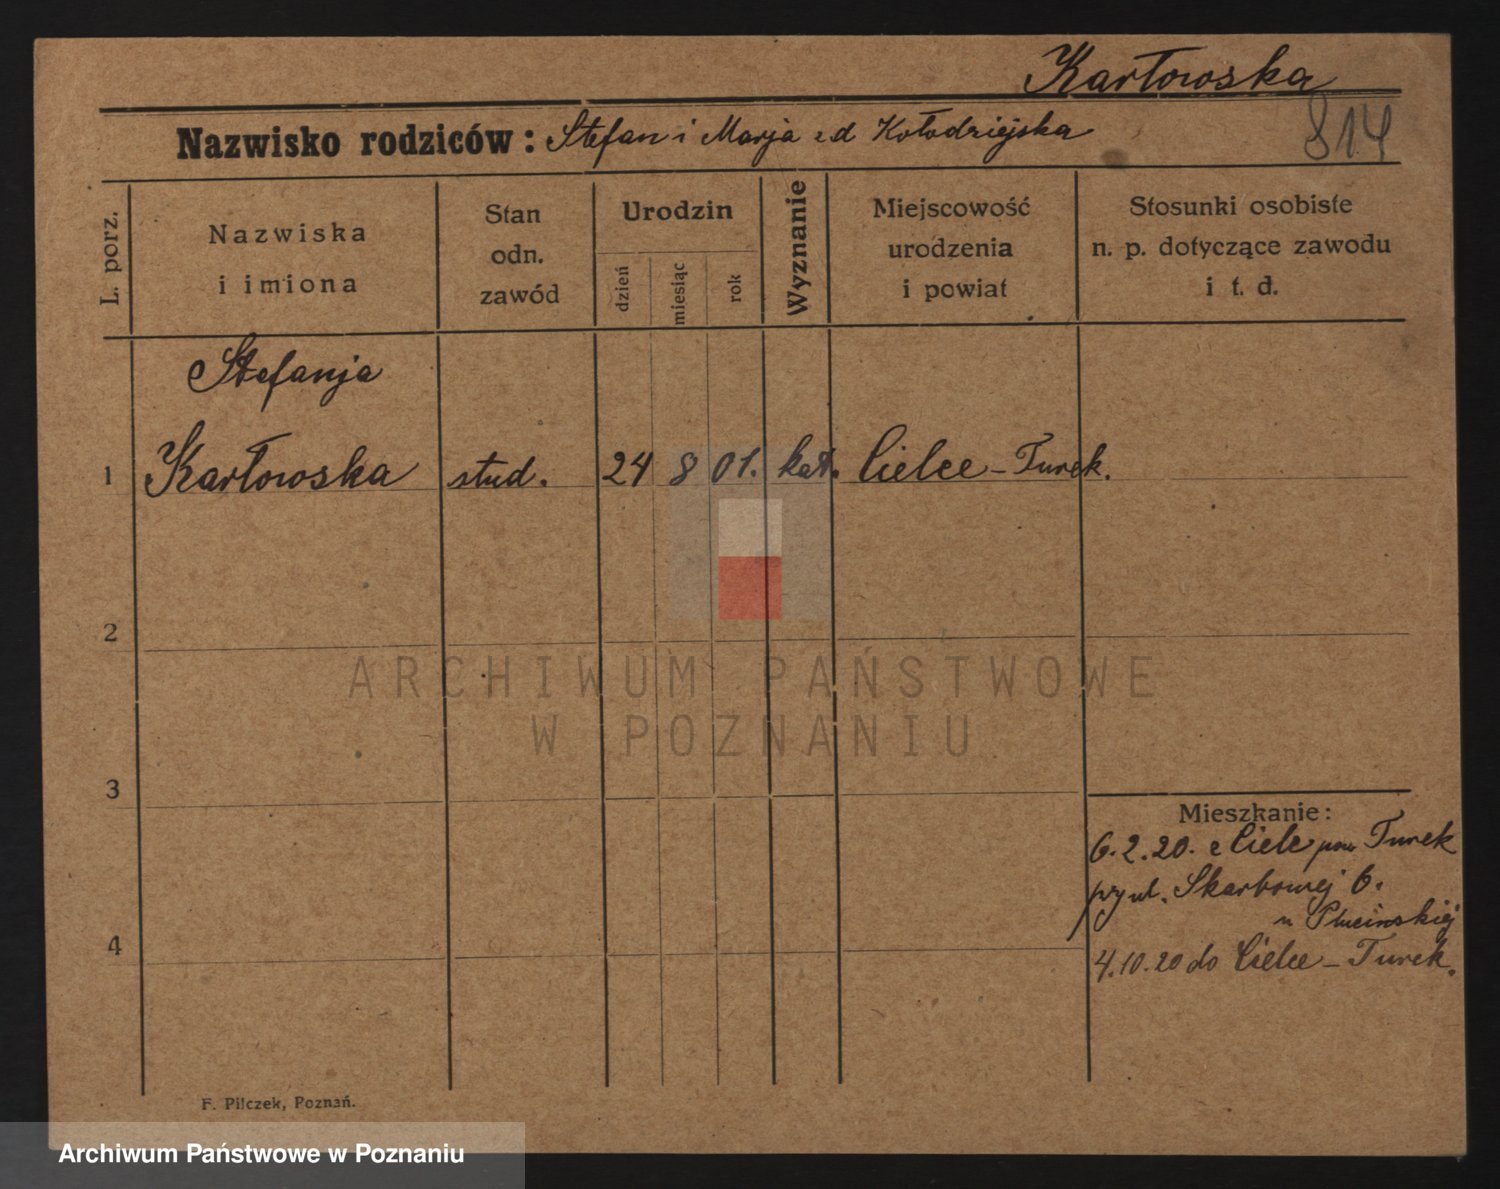 Karłowska
Nazwisko rodziców: Stefan i Marja zd Kołodziejska
814
L. porz.
Nazwiska
i imiona
Stan
odn.
zawód
Urodzin
dzień
miesiąc
rok
Wyznanie
Miejscowość
urodzenia
i powiat
Stosunki osobiste
n. p. dotyczące zawodu
i t. d.
Stefanja
1 Karłowska stud. 24 8 01. kat. Cielce – Turek.
2
ARCHIWUM PAŃSTWOWE
W POZNANIU
3
Mieszkanie:
6.2.20. z Cielc pow Turek
przy ul. Skarbowej 6.
u Plucińskiej
4
4.10.20 do Cielce – Turek.
F. Pilczek, Poznań.
Archiwum Państwowe w Poznaniu